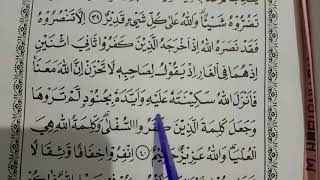 تَضُرُّوهُ شَيْئًا وَاللّٰهُ عَلٰى كُلِّ شَيْءٍ قَدِيْرٌ ﴿٣٩﴾ اِلَّا تَنْصُرُوْهُ
فَقَدْ نَصَرَهُ اللّٰهُ اِذْ اَخْرَجَهُ الَّذِيْنَ كَفَرُوْا ثَانِيَ اثْنَيْنِ
اِذْ هُمَا فِى الْغَارِ اِذْ يَقُوْلُ لِصَاحِبِهٖ لَا تَحْزَنْ اِنَّ اللّٰهَ مَعَنَا
فَاَنْزَلَ اللّٰهُ سَكِيْنَتَهٗ عَلَيْهِ وَاَيَّدَهٗ بِجُنُوْدٍ لَّمْ تَرَوْهَا
وَجَعَلَ كَلِمَةَ الَّذِيْنَ كَفَرُوا السُّفْلٰى وَكَلِمَةُ اللّٰهِ هِيَ
الْعُلْيَا وَاللّٰهُ عَزِيْزٌ حَكِيْمٌ ﴿٤٠﴾ اِنْفِرُوْا خِفَافًا وَّثِقَالًا